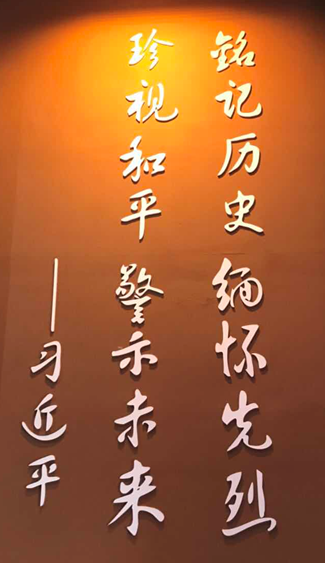 铭记历史 缅怀先烈
珍视和平 警示未来
——习近平